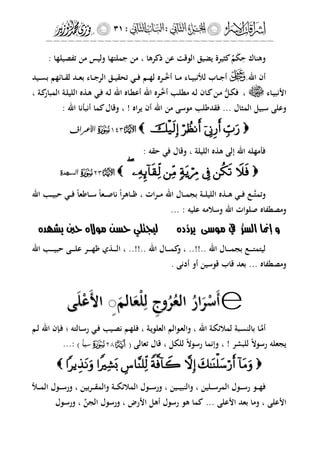 إشراقات الإسراء : الباب الثاني : ٣١
وهناك حِكَمٌ كثيرة يضيق الوقت عن ذكرها ، من جملتها وليس من تفصيلها :
أن الله أجاب للأنبياء ما أخَّره لهم في تحقيق الرجاء بعد لقائهم بسيد
الأنبياء ، فكلُّ من كان له مطلب أخَّره الله أعطاه الله له في هذه الليلة المباركة ،
وعلى سبيل المثال ... فقدطلب موسى من الله أن يراه ! ، وقال كما أنبأنا الله :
﴿ رَبِّ أَرِنِيٓ أَنظُرْ إِلَيْكَ ﴾ ١٤٣ الأعراف
فأمهله الله إلى هذه الليلة ، وقال في حقه :
﴿ فَلَا تَكُن فِي مِرْيَةٍ مِّن لِّقَآئِهِۦ ﴾ ٢٣ السجدة
وتمتَّع في هذه الليلة بجمال الله مرات ، ظاهراً ناصعاً ساطعاً في حبيب الله
ومصطفاه صلوات الله وسلامه عليه : ...
و إنما السرُّ في موسى يردِّده ليجتلي حسن مولاه حين يشهده
ليتمتع بجمال الله ..!!.. ، وكمال الله ..!!.. ، الذي ظهر على حبيب الله
ومصطفاه ... بعد قاب قوسين أو أدنى .
أَسْرَارُ العُرُوجِ لِلْعَالَمِ الأَعْلَى
أمَّا بالنسبة لملائكة الله ، والعوالم العلوية ، فلهم نصيب في رسالته ؛ فإن الله لم
يجعله رسولاً للبشر ! ، وإنما رسولاً للكل ، قال تعالى ( ٢٨ سبأ ) :...
﴿ وَمَآ أَرْسَلْنَكَ إِلَّا كَآفَّةً لِّلنَّاسِ بَشِيرًا وَنَذِيرًا ﴾
فهو رسول المرسلين ، والنبيين ، ورسول الملائكة والمقربين ، ورسول الملأ
الأعلى ، وما بعد الأعلى ... كما هو رسول أهل الأرض ، ورسول الجنّ ، ورسول